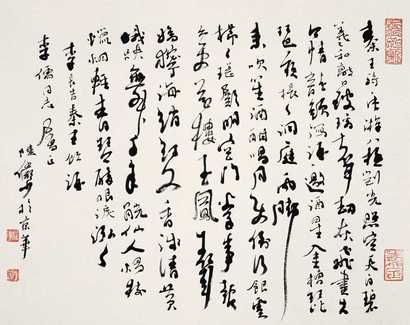 秦王騎虎遊八極劍光照空天自碧
羲和敲日玻璃聲劫灰飛盡古
今平龍頭瀉酒邀酒星金槽琵
琶夜棖棖洞庭雨腳
來吹笙酒酣喝月使倒行銀雲
櫛櫛瑤殿明宮門掌事報
一更花樓玉鳳聲
嬌獰海綃紅文香淺清黃
鵝跌舞千年觥仙人燭樹
蠟烟輕青琴醉眼淚泓泓
李長吉秦王飲酒
李儒同志屬正
陸儼少於京華